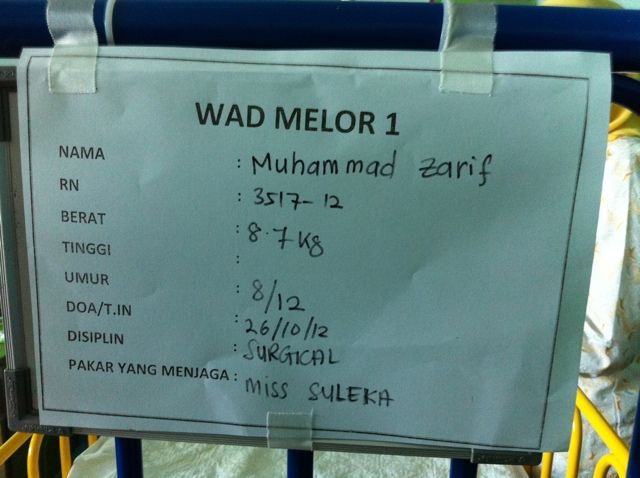 WAD MELOR 1
NAMA : Muhammad Zarif
RN : 3517-12
BERAT : 8.7 Kg
TINGGI :
UMUR : 8/12
DOA/T.IN : 26/10/12
DISIPLIN : SURGICAL
PAKAR YANG MENJAGA : MISS SULEKA